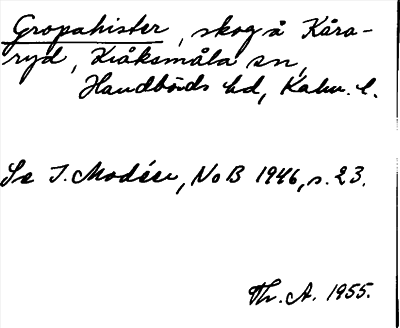 Gropahister, skog å Kåra-
ryd, Kråksmåla sn,
Handbörds hd, Kalm. l.
Se I. Modéer, NoB 1946, s. 23.
Th. A. 1955.